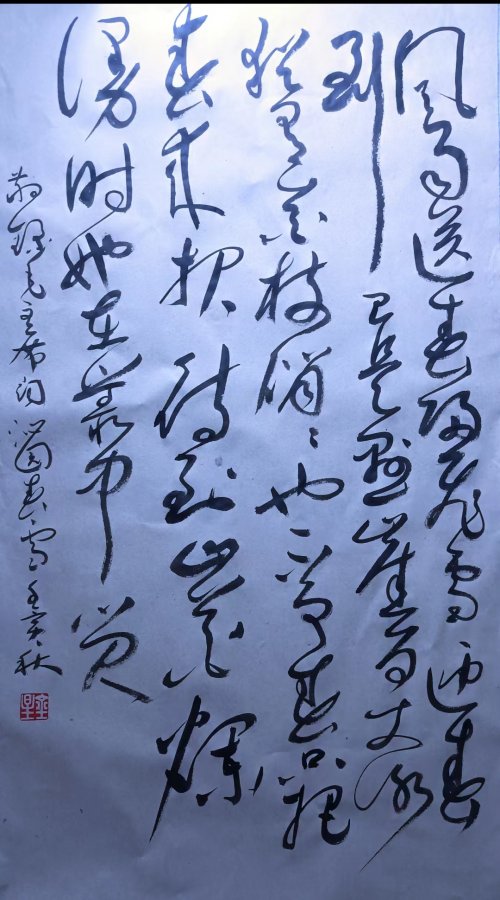 风雨送春归飞雪迎春
到已是悬崖百丈冰
犹有花枝俏〻也不争春只把
春来报待到山花烂
漫时她在丛中笑
敬录毛主席词沁园春雪秋